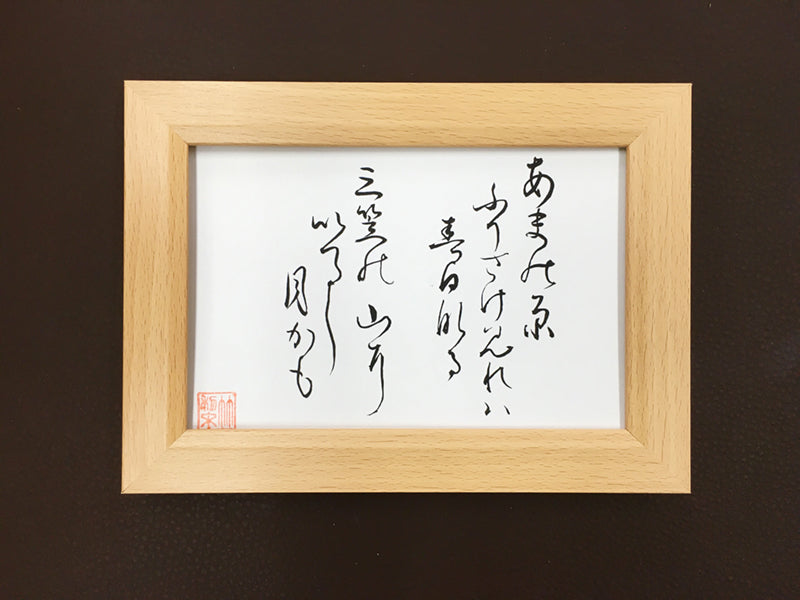 あまの原
ふりさけ見れハ
春日なる
三笠の山に
いてし
月かも